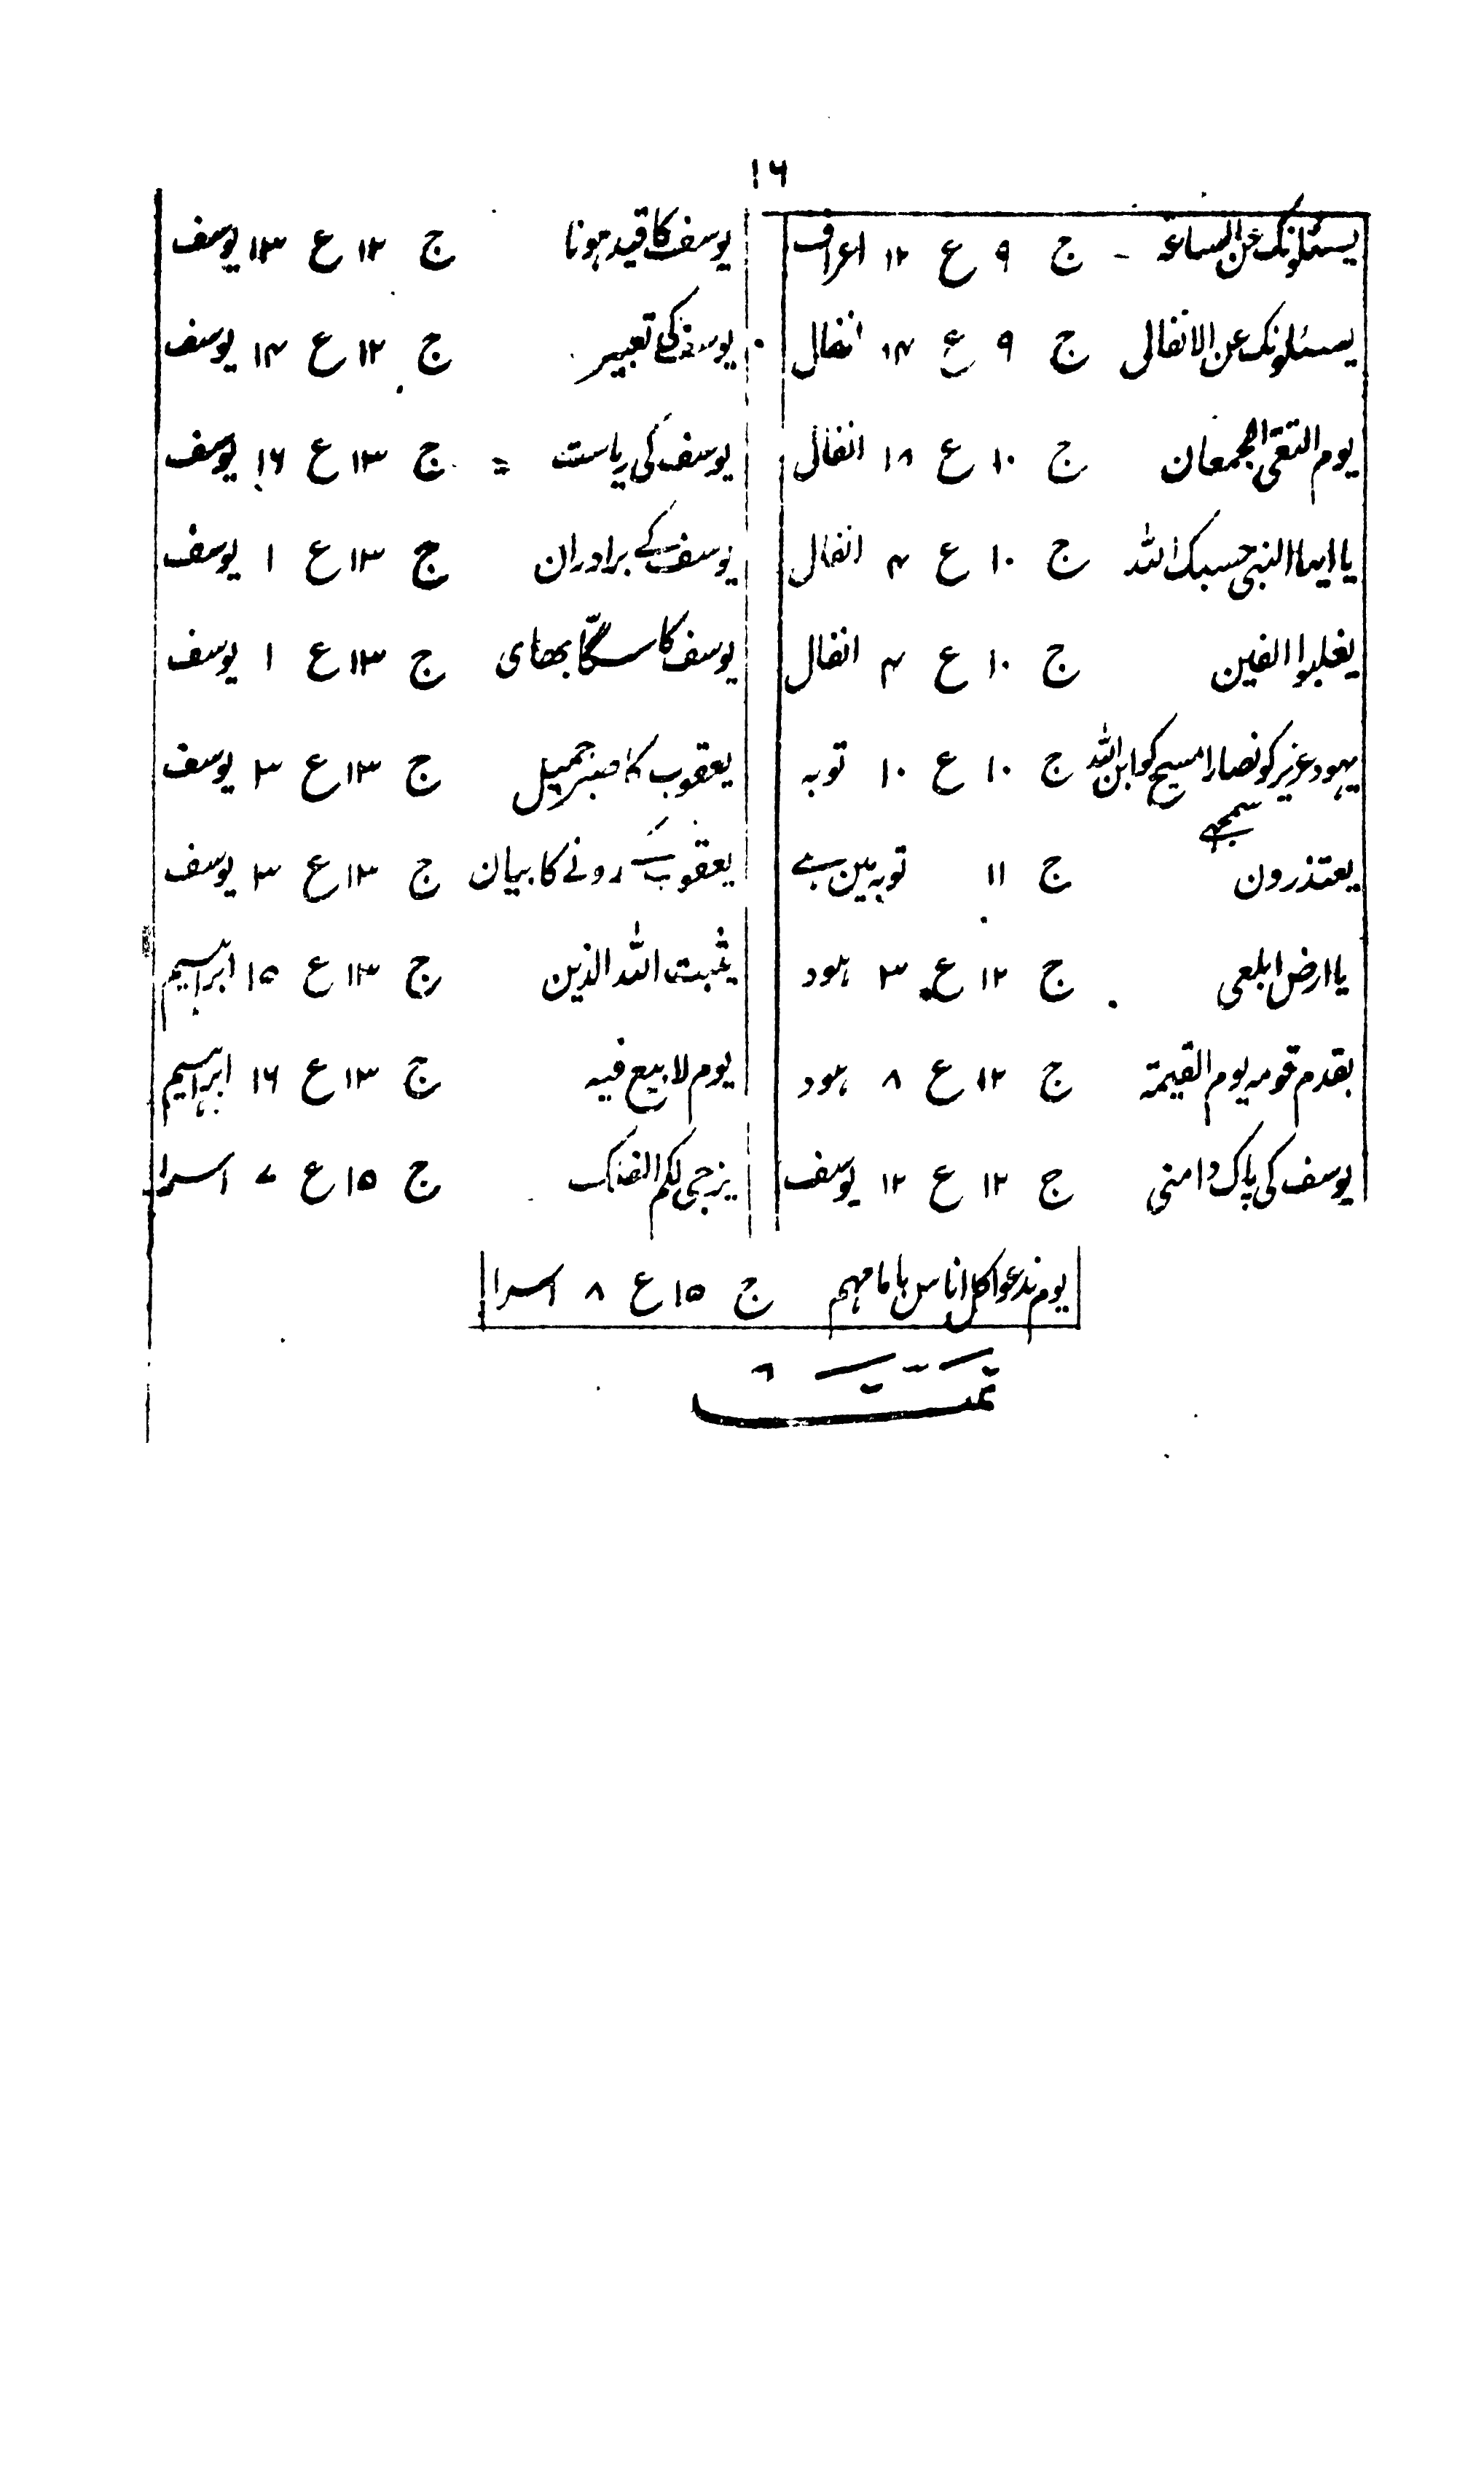 ۱۶
یسئلونک عن الساعۃ - ج ۹ ع ۱۲ اعراف
یسئلونک عن الانفال ج ۹ ع ۱۴ انفال
یوم التقی الجمعان ج ۱۰ ع ۱۸ انفال
یا ایہا النبی حسبک اللہ ج ۱۰ ع ۴ انفال
یغلبوا الفین ج ۱۰ ع ۴ انفال
یہود عزیر کو نصارا مسیح کو ابن اللہ سمجھے ج ۱۰ ع ۱۰ توبہ
یعتذرون ج ۱۱ توبہ مین ہے
یا ارض ابلعی ج ۱۲ ع ۳ ہود
یقدم قومہ یوم القیمۃ ج ۱۲ ع ۸ ہود
یوسف کی پاک دامنی ج ۱۲ ع ۱۲ یوسف
یوسف کا قید ہونا ج ۱۲ ع ۱۳ یوسف
یوسف کی تعبیر ج ۱۲ ع ۱۴ یوسف
یوسف کی ریاست = ج ۱۳ ع ۱۶ یوسف
یوسف کے برادران ج ۱۳ ع ۱ یوسف
یوسف کا سگّا بھای ج ۱۳ ع ۱ یوسف
یعقوب کا صبر جمیل ج ۱۳ ع ۳ یوسف
یعقوب کے رونے کا بیان ج ۱۳ ع ۳ یوسف
یثبت اللہ الذین ج ۱۳ ع ۱۵ ابراہیم
یوم لا بیع فیہ ج ۱۳ ع ۱۶ ابراہیم
یزجی لکم الفلک ج ۱۵ ع ۷ اسرا
یوم ندعوا کل اناس بامامہم ج ۱۵ ع ۸ اسرا
تمت